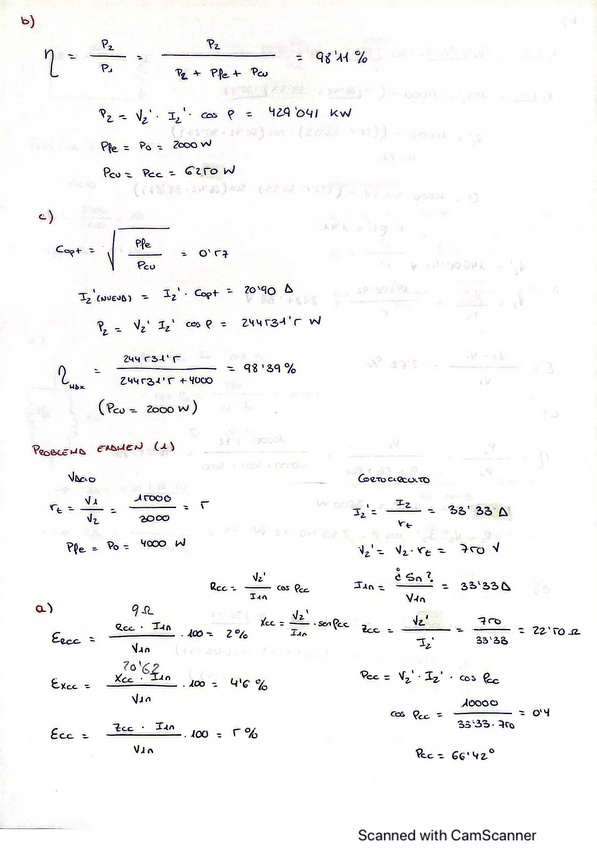 b)
η = P2 / P1 = P2 / (P2 + Pfe + Pcu) = 98'11 %
P2 = V2' · I2' · cos φ = 429'041 KW
Pfe = Po = 2000 W
Pcu = Pcc = 6250 W
c)
Copt = √(Pfe / Pcu) = 0'57
I2' (NUEVA) = I2' · Copt = 20'90 A
P2 = V2' I2' cos φ = 244531'5 W
η MAX = 244531'5 / (244531'5 + 4000) = 98'39 %
(Pcu = 2000 W)
PROBLEMA EXAMEN (1)
VACIO
rt = V1 / V2 = 15000 / 3000 = 5
Pfe = Po = 4000 W
CORTOCIRCUITO
I2' = I2 / rt = 33'33 A
V2' = V2 · rt = 750 V
Rcc = V2' / I1n cos φcc
I1n = ¿Sn? / V1n = 33'33 A
a)
9 Ω
εRcc = Rcc · I1n / V1n · 100 = 2 %
Xcc = V2' / I1n · sen φcc
Zcc = V2' / I2' = 750 / 33'33 = 22'50 Ω
20'62
εXcc = Xcc · I1n / V1n · 100 = 4'6 %
Pcc = V2' · I2' · cos φcc
cos φcc = 10000 / 33'33 · 750 = 0'4
εcc = Zcc · I1n / V1n · 100 = 5 %
φcc = 66'42°
Scanned with CamScanner